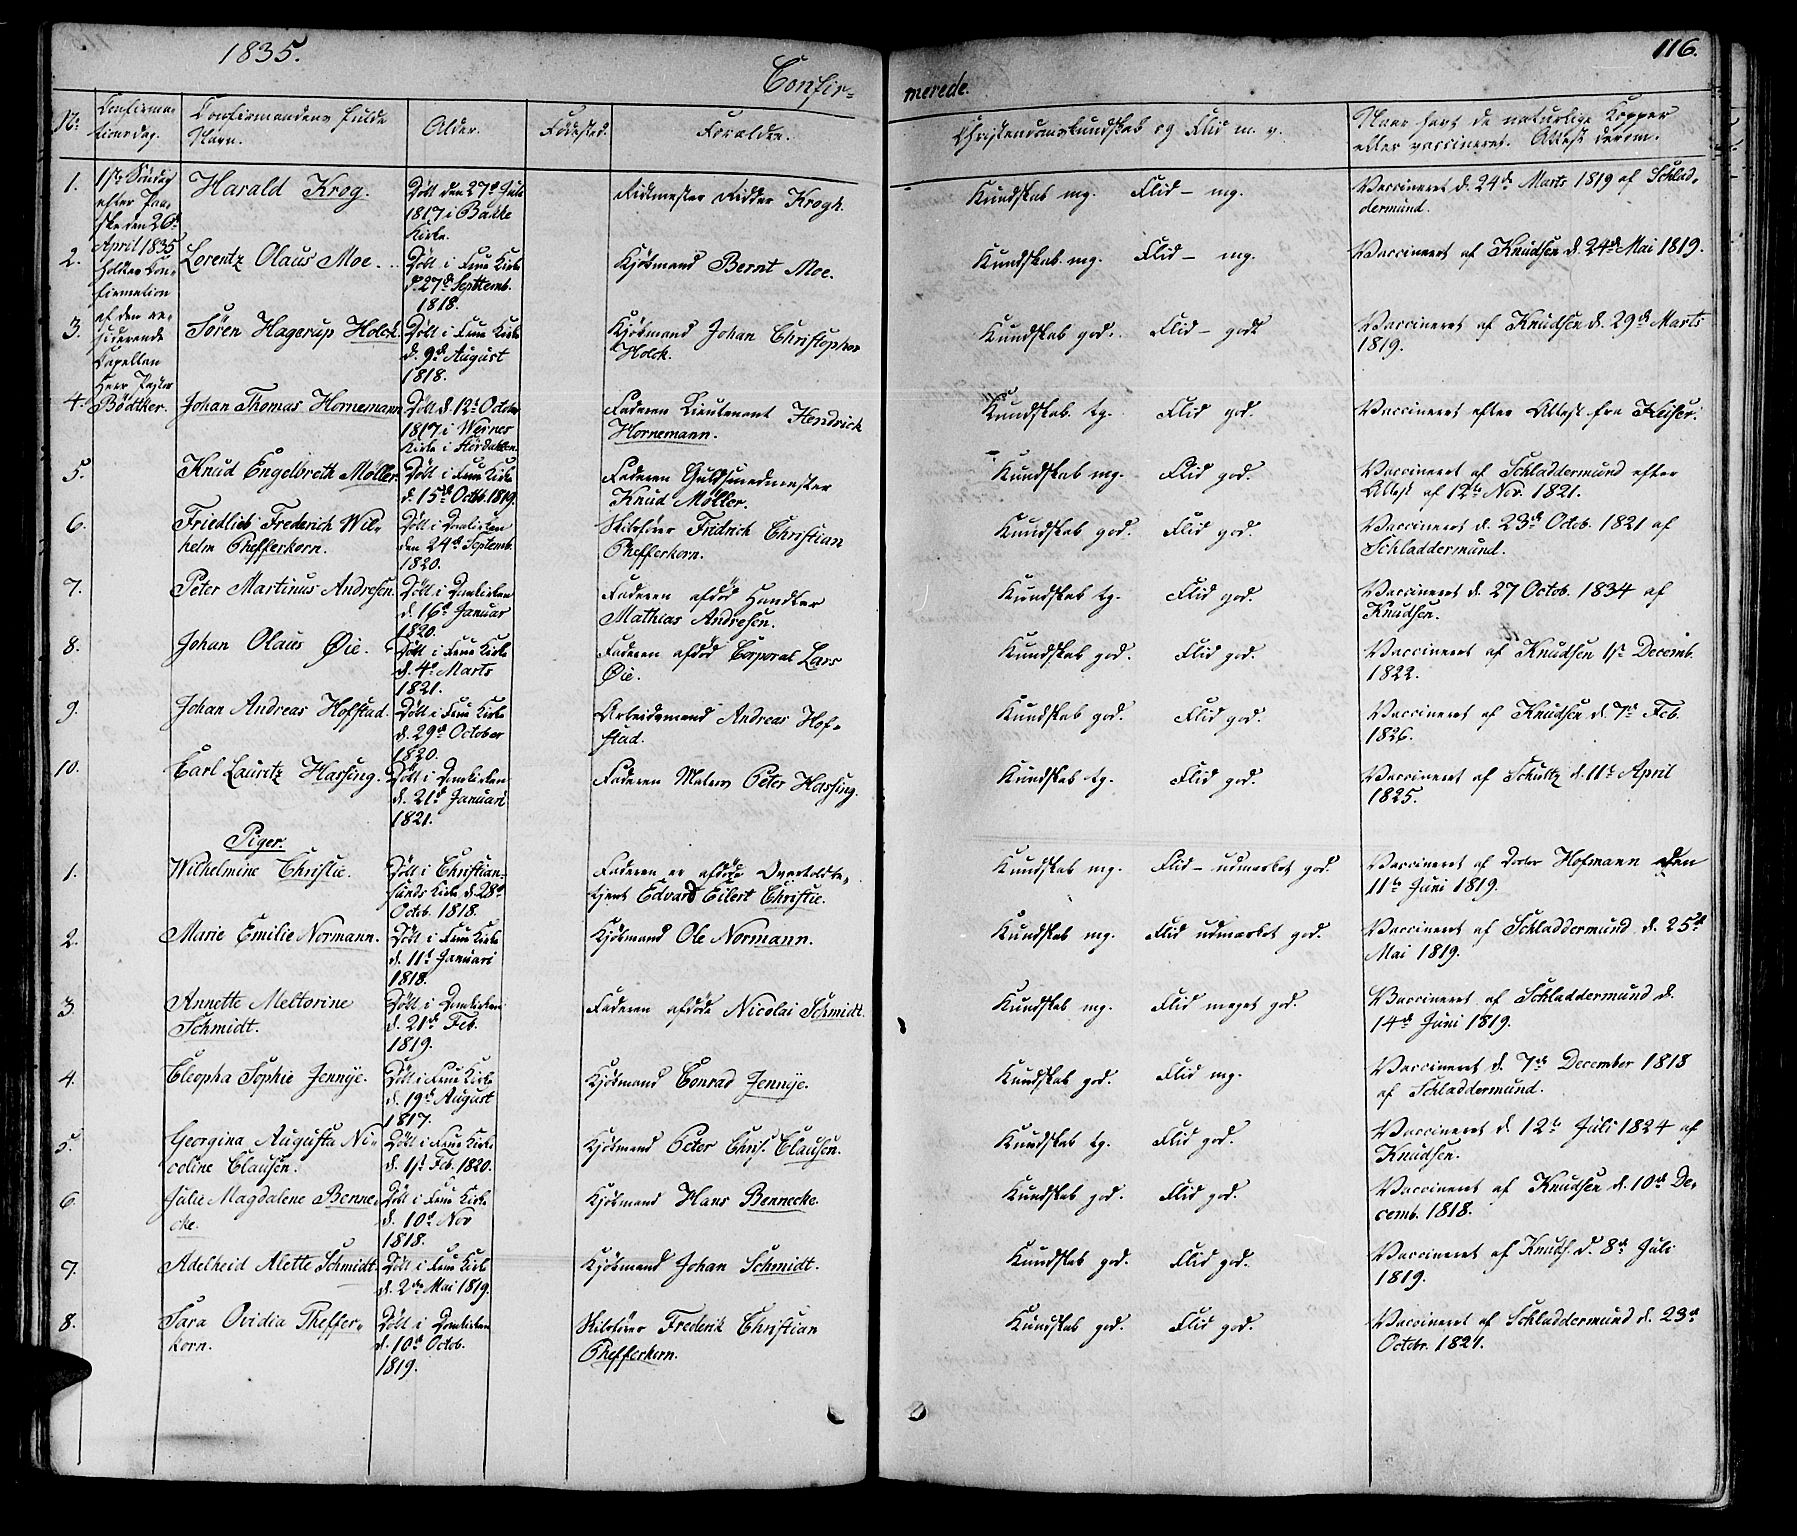 1835.
116.
Confir=
merede.
No.
Confirma-
tionsdag.
Confirmandens fulde
Navn.
Alder.
Fødested.
Forældre.
Christendomskundskab og Flid m. v.
Naar havt de naturlige Kopper
eller vaccineret. Attest derom.
1ste Søndag
efter Paa-
ske den 26de
April 1835
holdes Con-
firmation
af den re-
siderende
Capellan
Herr Pastor
Bödtker.
1.
Harald Krog.
Døbt den 27de Juli
1817 i Bakke
Kirke.
Ridmester Ridder Krogh.
Kundskab mg. Flid - mg.
Vaccineret d. 24de Marts 1819 af Schlad-
dermund.
2.
Lorentz Olaus Moe.
Døbt i Frue Kirke
d. 27de Septemb.
1818.
Kjøbmand Bernt Moe.
Kundskab mg. Flid - mg.
Vaccineret af Knudsen d. 24de Mai 1819.
3.
Sören Hagerup Holck.
Døbt i Frue Kirke
d. 9de August
1818.
Kjøbmand Johan Christopher
Holck.
Kundskab god. Flid - godt
Vaccineret af Knudsen d. 29de Marts
1819.
4.
Johan Thomas Hornemann
Døbt d. 12te October
1817 i Wernes
Kirke i Stördalen.
Faderen Lieutenant Hendrich
Hornemann.
Kundskab tg. Flid god.
Vaccineret efter Attest fra Keiser.
5.
Knud Engelbreth Møller.
Døbt i Frue Kirke
d. 15de Octb. 1819.
Faderen Guldsmedmester
Knud Møller.
Kundskab mg. Flid god.
Vaccineret af Schladdermund efter
Attest af 12te Nov. 1821.
6.
Friedlieb Frederich Wil-
helm Phefferkorn.
Døbt i Domkirken
den 24de Septemb.
1820.
Skiløber Fridrich Christian
Phefferkorn.
Kundskab god. Flid god.
Vaccineret d. 23de Octob. 1821 af
Schladdermund.
7.
Peter Martinus Andresen.
Døbt i Domkirken
d. 16de Januar
1820.
Faderen afdød Handler
Mathias Andresen.
Kundskab tg. Flid god.
Vaccineret d. 27 Octob. 1834 af
Knudsen.
8.
Johan Olaus Øie.
Døbt i Frue Kirke
d. 4de Marts
1821.
Faderen afdød Corporal Lars
Øie.
Kundskab god. Flid god.
Vaccineret af Knudsen 1ste Decemb.
1822.
9.
Johan Andreas Hofstad.
Døbt i Frue Kirke
d. 29de October
1820.
Arbeidsmand Andreas Hof-
stad.
Kundskab god. Flid god.
Vaccineret af Knudsen d. 7de Feb.
1826.
10.
Carl Lauritz Hassing.
Døbt i Domkirken
d. 21de Januari
1821.
Faderen Matros Peter Hassing.
Kundskab tg. Flid god.
Vaccineret af Schultz d. 11te April
1825.
Piger.
1.
Wilhelmine Christie.
Døbt i Christian-
sunds Kirke d. 28de
Octob. 1818.
Faderen er afdøde Overtoldbe-
tjent Edvard Eilert Christie.
Kundskab mg. Flid - udmærket god.
Vaccineret af Doctor Hofmann den
11te Juni 1819.
2.
Marie Emilie Normann.
Døbt i Frue Kirke
d. 11te Januari
1818.
Kjøbmand Ole Normann.
Kundskab mg. Flid udmærket god.
Vaccineret af Schladdermund d. 25de
Mai 1819.
3.
Annette Meltorine
Schmidt.
Døbt i Domkirken
d. 21de Feb.
1819.
Faderen afdøde Nicolai Schmidt.
Kundskab mg. Flid meget god.
Vaccineret af Schladdermund d.
14de Juni 1819.
4.
Cleopha Sophie Jennye.
Døbt i Frue Kirke
d. 19de August
1817.
Kjøbmand Conrad Jennye.
Kundskab god. Flid mg.
Vaccineret d. 7de December 1818
af Schladdermund.
5.
Georgina Augusta Ni-
coline Clausen.
Døbt i Frue Kirke
d. 1ste Feb. 1820.
Kjøbmand Peter Chris. Clausen.
Kundskab tg. Flid god.
Vaccineret d. 12te Juli 1824 af
Knudsen.
6.
Julie Magdalene Benne-
cke.
Døbt i Frue Kirke
d. 10de Nov
1818.
Kjøbmand Hans Bennecke.
Kundskab god. Flid god.
Vaccineret af Knudsen d. 10de De-
cemb. 1818.
7.
Adelheid Alette Schmidt
Døbt i Frue Kirke
d. 2den Mai 1819.
Kjøbmand Johan Schmidt.
Kundskab god. Flid god.
Vaccineret af Knuds. d. 8de Juli
1819.
8.
Sara Ovidia Pheffer-
korn.
Døbt i Domkirken
d. 10de Octob.
1819.
Skiløber Frederik Christian
Phefferkorn.
Kundskab god. Flid god.
Vaccineret af Schladdermund d. 23de
Octobr. 1821.